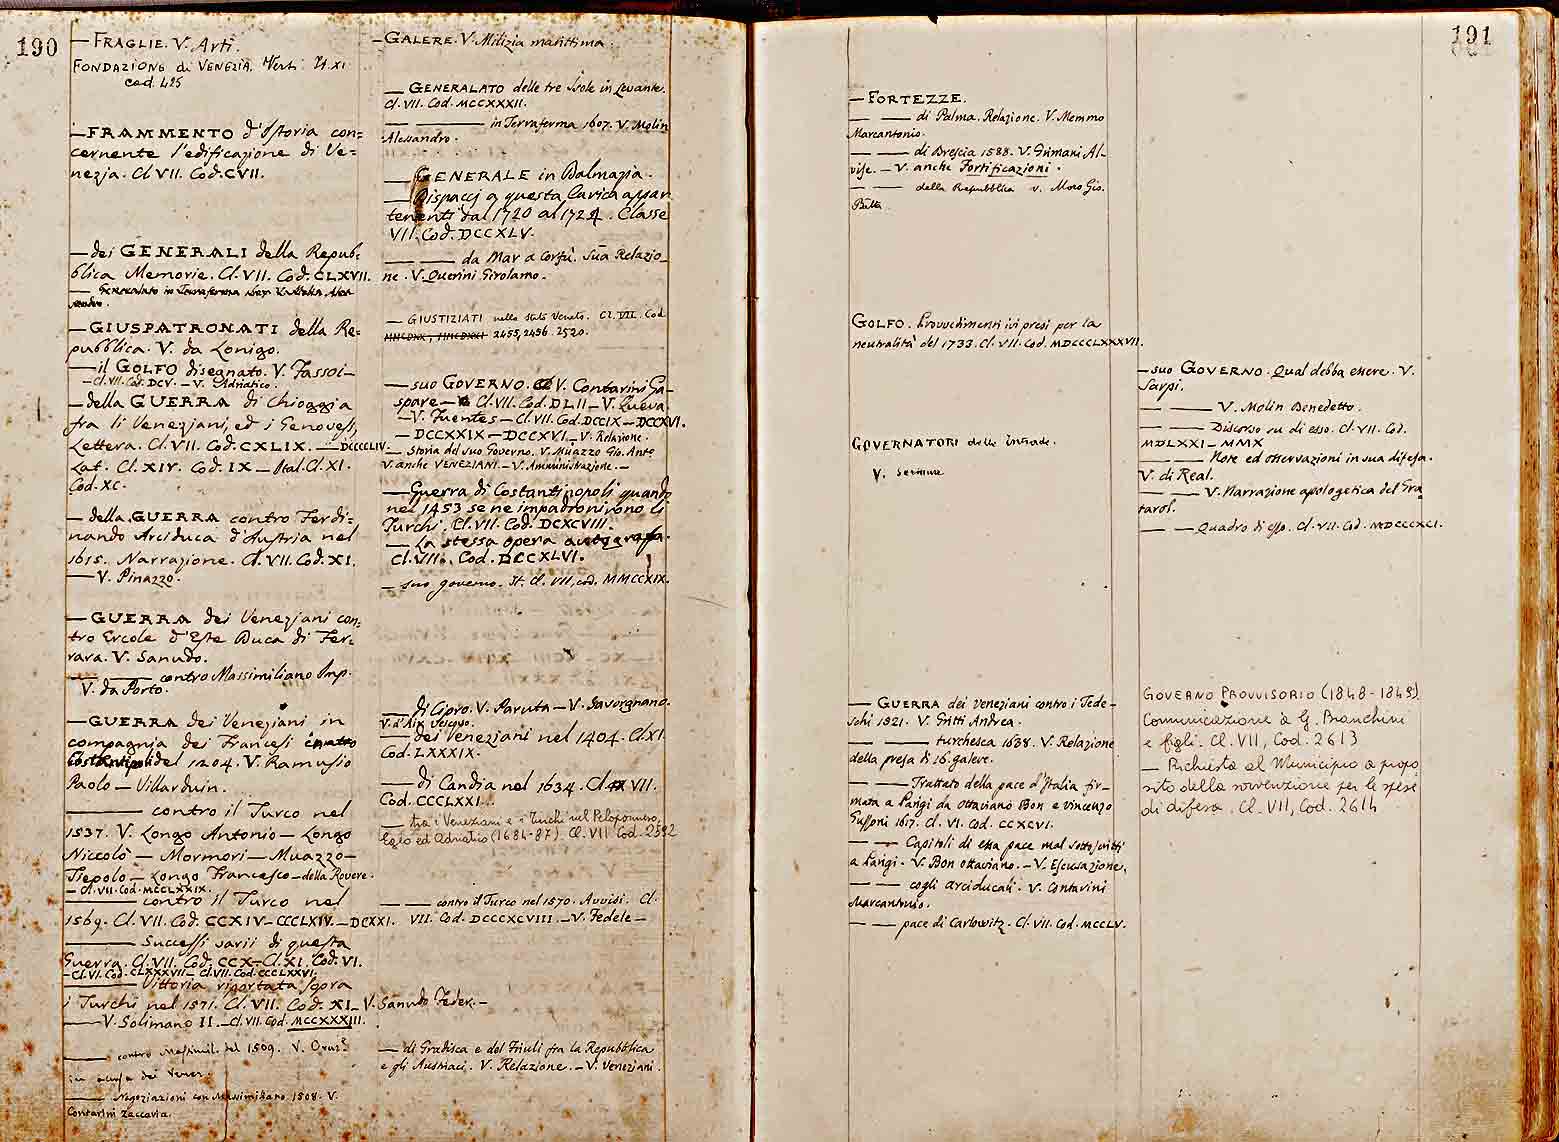 190
— FRAGLIE. V. Arti.
FONDAZIONE di VENEZIA. Vert. It. XI
cod. 425
— FRAMMENTO d'Istoria con=
cernente l'edificazione di Ve=
nezia. Cl VII. Cod. CVII.
— dei GENERALI della Repub=
blica Memorie. Cl. VII. Cod. CLXVII.
— Generalato in Terraferma V. Molin Ales
sandro.
— GIUSPATRONATI della Re=
pubblica. V. da Lonigo.
— il GOLFO disegnato. V. Fassoi—
— Cl. VII. Cod. DCV. — V. Adriatico.
— della GUERRA di Chioggia
fra li Veneziani, ed i Genovesi,
Lettera. Cl. VII. Cod. CXLIX. — DCCCCLIV.
Lat. Cl. XIV. Cod. IX — Ital. Cl. XI.
Cod. XC.
— della GUERRA contro Ferdi=
nando Arciduca d'Austria nel
1615. Narrazione. Cl. VII. Cod. XI.
— V. Pinazzo.
— GUERRA dei Veneziani con=
tro Ercole d'Este Duca di Fer=
rara. V. Sanudo.
— — contro Massimiliano Imp.
V. da Porto.
— GUERRA dei Veneziani in
compagnia dei Francesi contro
Costantinopoli del 1204. V. Ramusio
Paolo — Villarduin.
— contro il Turco nel
1537. V. Longo Antonio — Longo
Niccolò — Mormori — Muazzo —
Tiepolo — Longo Francesco — della Rovere.
— Cl. VII. Cod. MCCLXXIX.
— contro il Turco nel
1569. Cl. VII. Cod. CCXIV — CCCLXIV. — DCXXI.
— Successi varii di questa
Guerra. Cl. VII. Cod. CCX — Cl. XI. Cod. VI.
— Cl. VI. Cod. CLXXXVII — Cl. VII. Cod. CCCLXXVI.
— Vittoria riportata sopra
i Turchi nel 1571. Cl. VII. Cod. XI — V. Sanudo Feder. —
— V. Solimano II. — Cl. VII. Cod. MCCXXXIII.
— contro Massimil. del 1509. V.
dei
— Negoziazioni con Massimiliano 1508. V.
Contarini Zaccaria.
— GALERE. V. Milizia marittima.
— GENERALATO delle tre Isole in Levante.
Cl. VII. Cod. MCCXXXII.
— — in Terraferma 1607. V. Molin
Alessandro.
— GENERALE in Dalmazia.
— Dispacci a questa Carica appar
tenenti dal 1720 al 1724. Classe
VII. Cod. DCCXLV.
— — da Mar a Corfù. Sua Relazio
ne. V. Querini Girolamo.
— GIUSTIZIATI nello Stato Veneto. Cl. VII. Cod
2455, 2456. 2520.
— suo GOVERNO. V. Contarini Ga-
spare — Cl. VII. Cod. DLII — V. Queva
— V. Fuentes — Cl. VII. Cod. DCCIX — DCCXVI.
— DCCXXIX — DCCXVI — V. Relazione.
— Storia del suo Governo. V. Muazzo Gio. Anto
V. anche VENEZIANI. — V. Amministrazione. —
— Guerra di Costantinopoli quando
nel 1453 se ne impadronirono li
Turchi. Cl. VII. Cod. DCXCVIII.
— La stessa opera autografa.
Cl. VII. Cod. DCCXLVI.
— suo governo. It. Cl. VII, cod. MMCCXIX.
— di Cipro. V. Paruta — V. Savorgnano.
V. d'Aix Vescovo.
— dei Veneziani nel 1404. Cl. XI.
Cod. LXXXIX.
— di Candia nel 1634. Cl. VII.
Cod. CCCLXXI.
— tra i Veneziani e i Turchi nel Peloponneso,
Egeo ed Adriatico (1684-87). Cl. VII Cod. 2592
— — contro il Turco nel 1570. Avvisi. Cl.
VII. Cod. DCCCXCVIII. — V. Fedele —
— di Gradisca e del Friuli fra la Repubblica
e gli Austriaci. V. Relazione. — V. Veneziani.
191
— FORTEZZE.
— — di Palma. Relazione. V. Memmo
Marcantonio.
— — di Brescia 1588. V. Grimani Al-
vise. — V. anche Fortificazioni.
— — della Repubblica v. Moro Gio.
Batta
GOLFO. Provvedimenti ivi presi per la
neutralità del 1733. Cl. VII. Cod. MDCCCLXXXVII.
GOVERNATORI delle Intrade.
V. Scritture
— GUERRA dei Veneziani contro i Tede-
schi 1921. V. Gritti Andrea.
— — turchesca 1638. V. Relazione
della presa di 16. galere.
— — Trattato della pace d'Italia fir-
mata a Parigi da Ottaviano Bon e Vincenzo
Gussoni 1617. Cl. VI. Cod. CCXCVI.
— — Capitoli di essa pace mal sottoscritti
a Parigi. V. Bon Ottaviano. — V. Escusazione.
— — cogli Arciducali. V. Contarini
Marcantonio.
— — pace di Carlowitz. Cl. VII. Cod. MCCLV.
— suo GOVERNO. Qual debba essere. V.
Sarpi.
— — V. Molin Benedetto.
— — Discorso su di esso. Cl. VII. Cod.
MDLXXI — MMX
— — Note ed osservazioni in sua difesa.
V. di Real.
— — V. Narrazione apologetica del Gra
tarol.
— — Quadro di esso. Cl. VII. Cod. MDCCCXCI.
GOVERNO PROVVISORIO (1848-1849)
Comunicazione a G. Bianchini
e figli. Cl. VII, Cod. 2613
— Richiesta al Municipio a propo
sito della sovvenzione per le spese
di difesa. Cl. VII, Cod. 2614